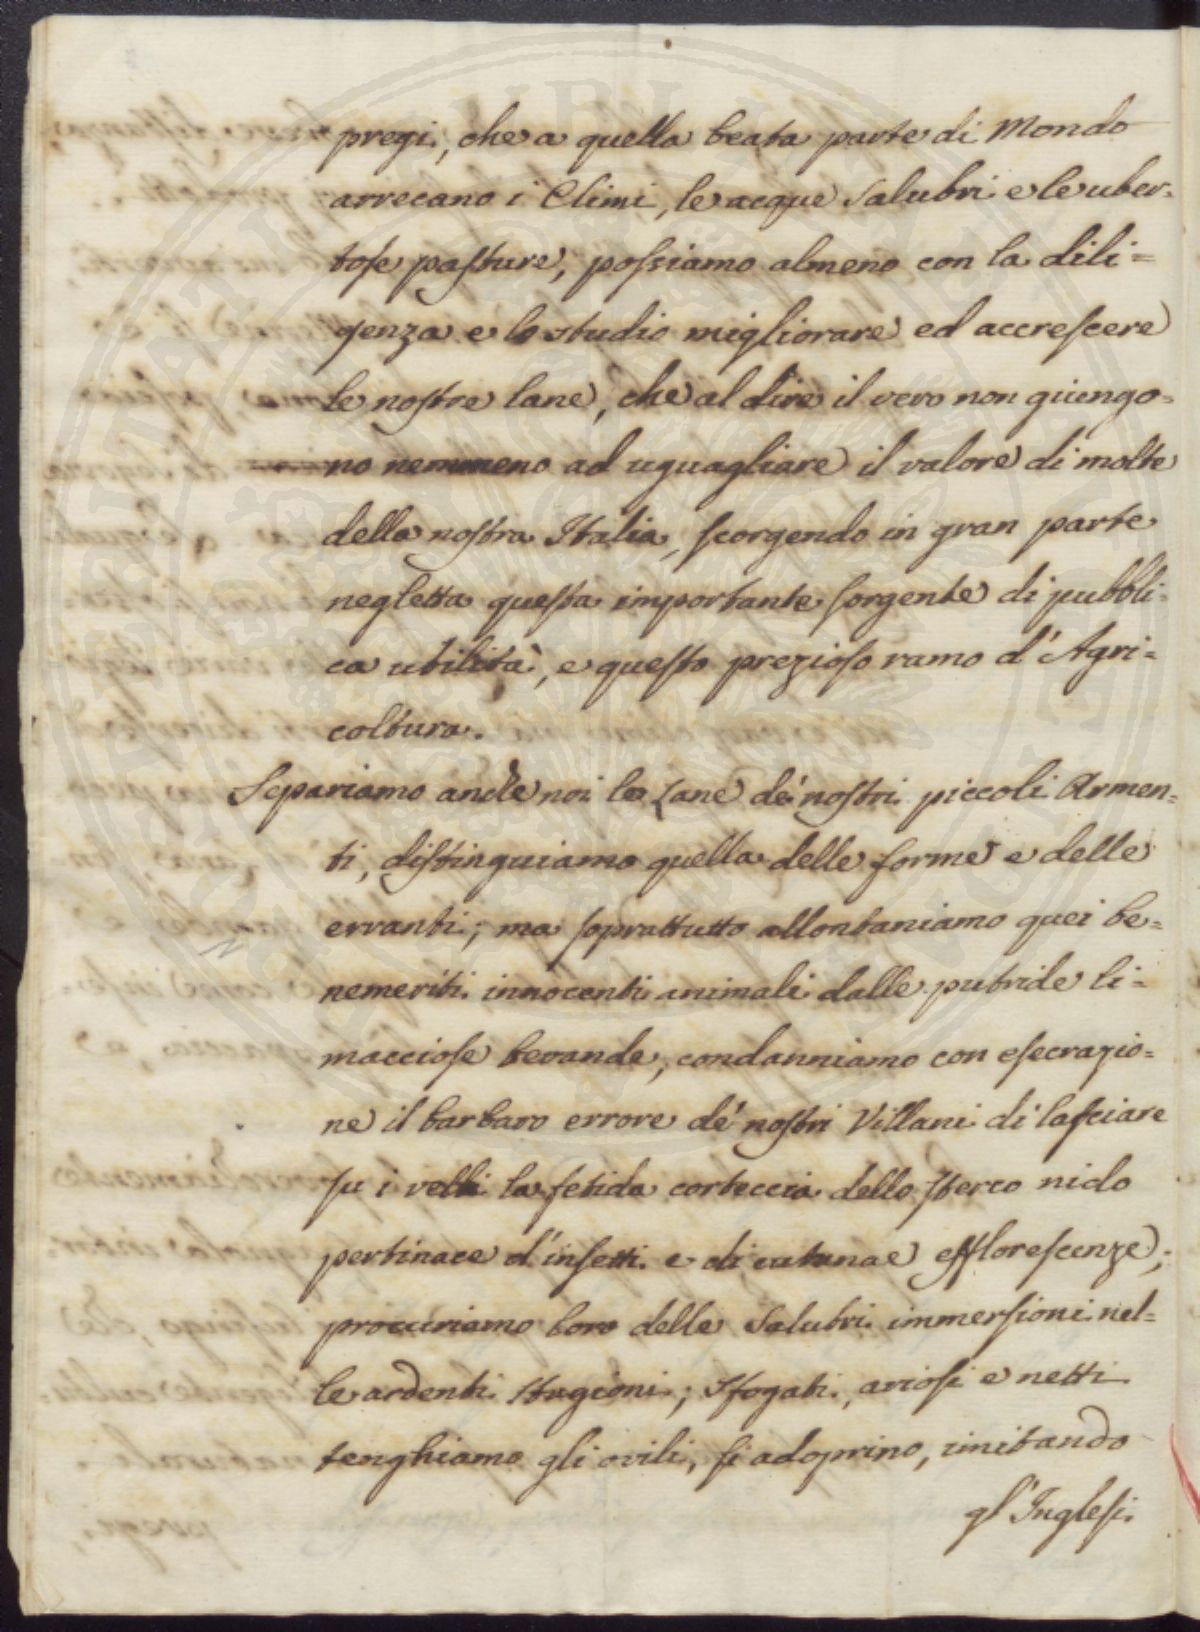 pregi, che a quella beata parte di Mondo
arrecano i Climi, le acque Salubri e le uber-
tose pasture, possiamo almeno con la dili=
genza e lo studio migliorare ed accrescere
le nostre lane, che al dire il vero non giungo=
no nemmeno ad uguagliare il valore di molte
della nostra Italia, scorgendo in gran parte
negletta questa importante sorgente di pubbli-
ca utilità, e questo prezioso ramo d'Agri=
coltura.
Separiamo anche noi le Lane de' nostri piccoli Armen=
ti, distinguiamo quella delle ferme e delle
erranti; ma soprattutto allontaniamo quei be=
nemeriti innocenti animali dalle putride li=
macciose bevande, condanniamo con esecrazio=
ne il barbaro errore de' nostri Villani di lasciare
su i velli la fetida corteccia dello sterco nido
pertinace d'insetti e di cutanae efflorescenze;
procuriamo loro delle Salubri immersioni nel=
le ardenti stagioni; sfogati, ariosi e netti
tenghiamo gli ovili, si adoprino, imitando
gl'Inglesi